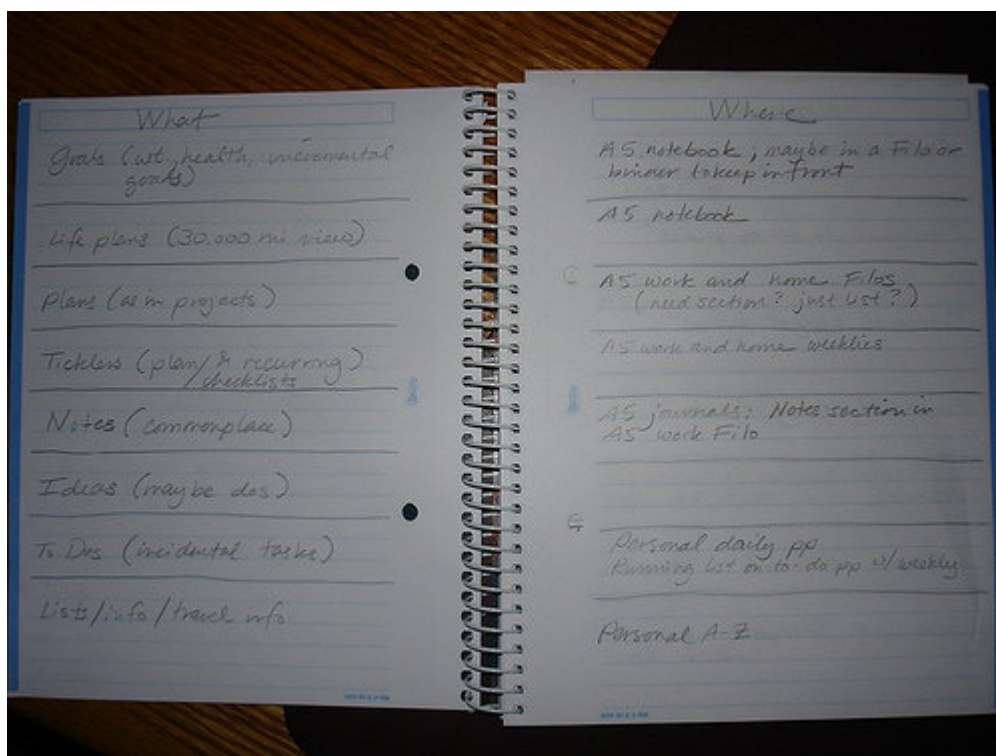 What
Goals (wt, health, incremental
goals)
Life plans (30,000 mi view)
Plans (as in projects)
Ticklers (plan/ & recurring)
checklists
Notes (commonplace)
Ideas (maybe dos)
To Dos (incidental tasks)
Lists/info/travel info
Where
A5 notebook; maybe in a Filo or
binder to keep in front
A5 notebook
A5 work and home Filos
(need section? just list?)
A5 work and home weeklies
A5 journals; Notes section in
A5 work Filo
Personal daily pp
Running list on to-do pp w/weekly
Personal A-Z